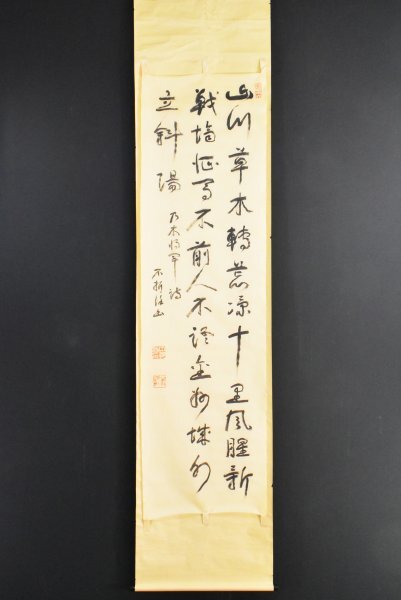 山川草木轉荒涼十里風腥新
戦場征馬不前人不語金州城外
立斜陽
乃木将軍詩
不折住山